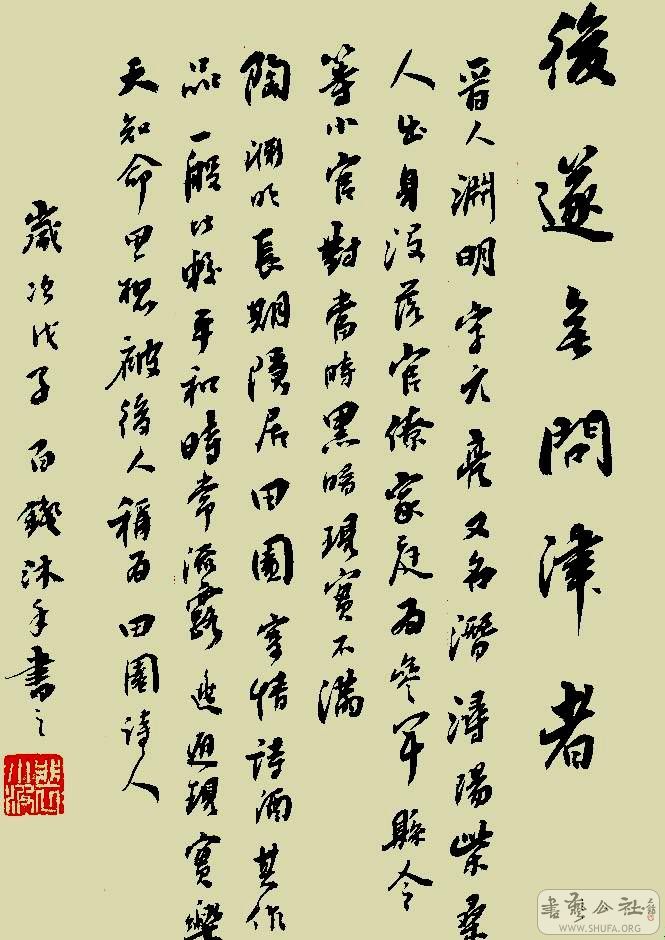 後遂無問津者
晋人淵明字元亮又名潛潯陽柴桑
人出身沒落官僚家庭爲參军縣令
等小官對當時黑暗現實不滿
陶渊明長期隱居田園寄情詩酒其作
品一般比較平和時常流露逃避現實樂
天知命思想被後人稱爲田園詩人
歲次戊子百錢沐手書之
書藝公社
WWW.SHUFA.ORG